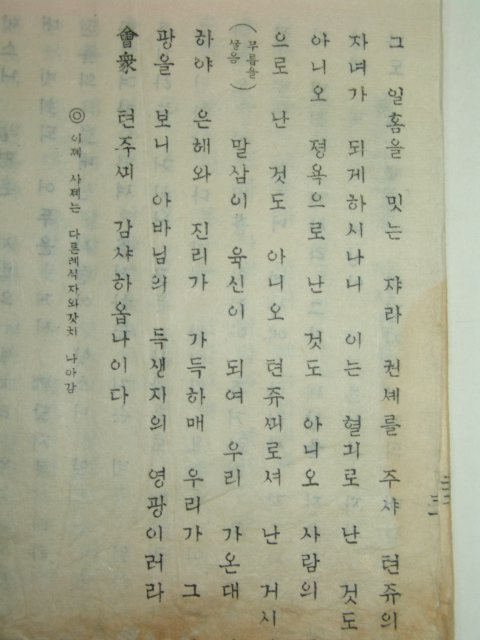 그 일홈을 밋는 쟈라 권셰를 주샤 텬쥬의
자녀가 되게하시나니 이는 혈긔로 난 것도
아니오 졍욕으로 난 것도 아니오 사람의
으로 난 것도 아니오 텬쥬ᄭᅴ로셔 난 거시
(무릅을 ᄭᅮᆯ음) 말삼이 육신이 되여 우리 가온대
하야 은혜와 진리가 가득하매 우리가 그
광을 보니 아바님의 독생자의 영광이러라
會衆 텬주ᄭᅴ 감샤하옵나이다
◎ 이ᄶᅦ 사졔는 다른례식자와갓치 나아감